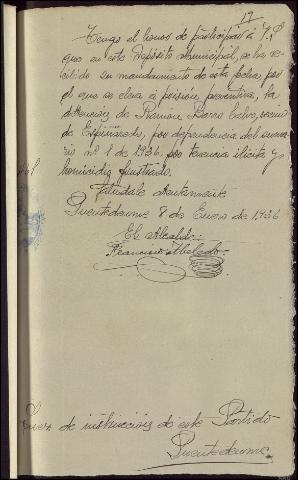 17
Tengo el honor de participar a V.S.
que en este Depósito Municipal, se ha re-
cibido su mandamiento de esta fecha, por
el que se eleva a prisión preventiva, la
detención de Ramón Barro Calvo, vecino
de Espiñaredo, por dependencia del suma-
rio nº 1 de 1936, por tenencia ilícita y
homicidio frustrado.
Puentedeume 8 de Enero de 1.936
El Alcalde:
Francisco
Juez de instrucción de este Partido
Puentedeume